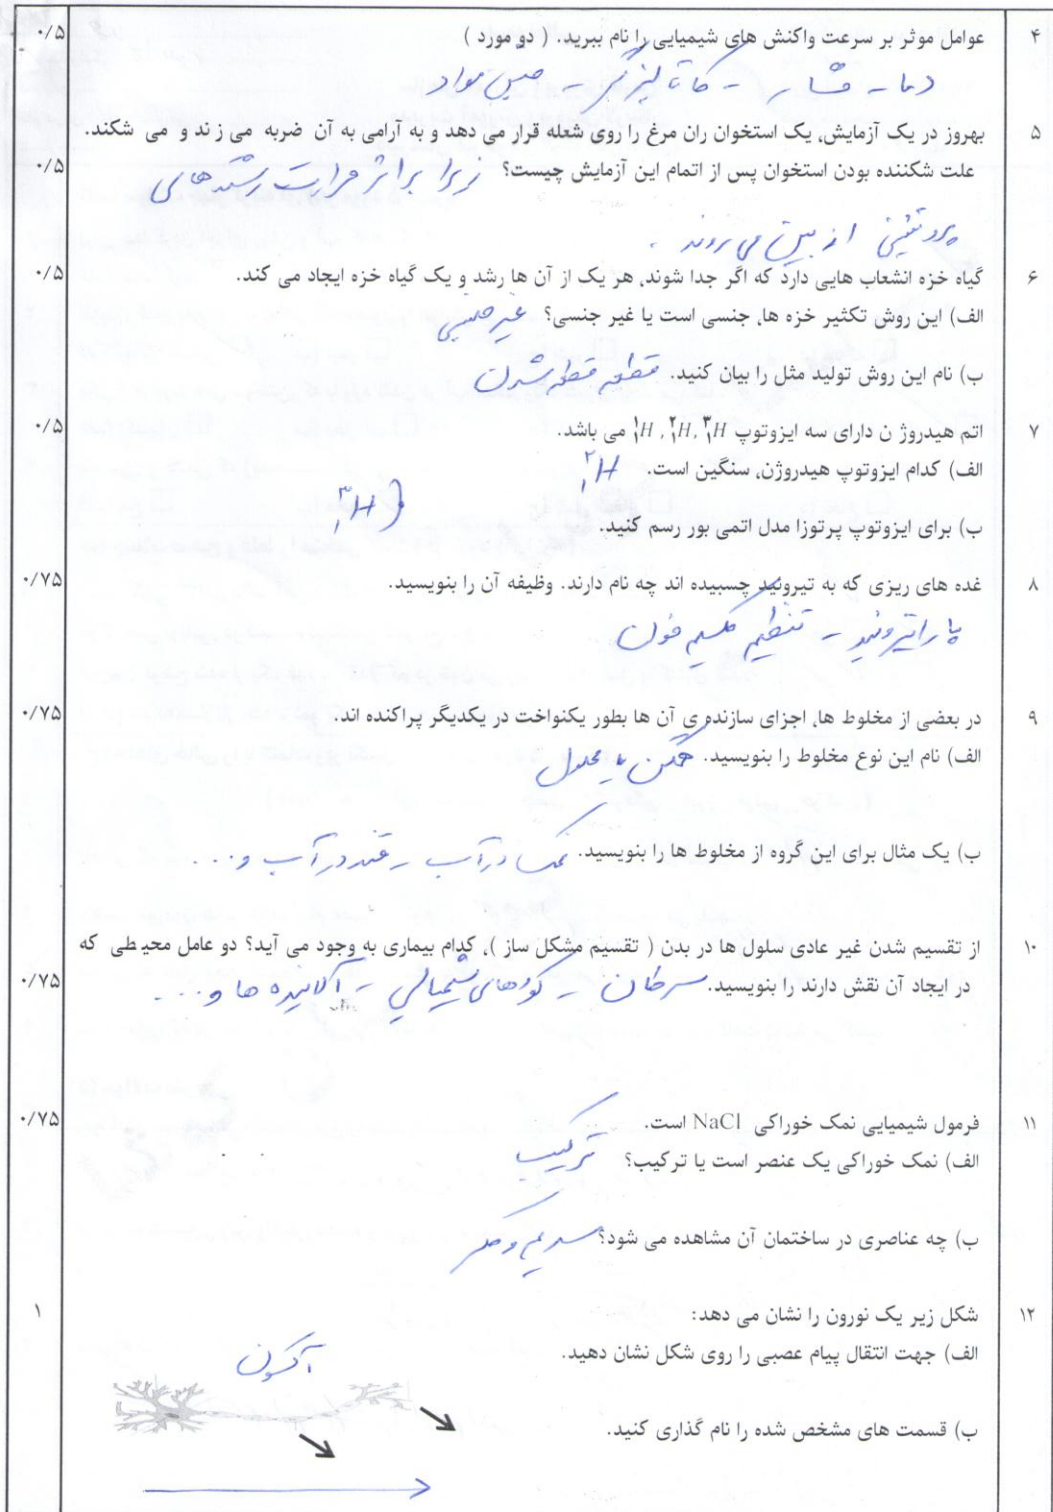 ۴ عوامل موثر بر سرعت واکنش های شیمیایی را نام ببرید. ( دو مورد ) ۰/۵
دما - فشار - کاتالیزگر - جنس مواد
۵ بهروز در یک آزمایش، یک استخوان ران مرغ را روی شعله قرار می دهد و به آرامی به آن ضربه می زند و می شکند.
علت شکننده بودن استخوان پس از اتمام این آزمایش چیست؟ زیرا بر اثر حرارت رشته های ۰/۵
پروتئینی از بین می روند .
۶ گیاه خزه انشعاب هایی دارد که اگر جدا شوند، هر یک از آن ها رشد و یک گیاه خزه ایجاد می کند. ۰/۵
الف) این روش تکثیر خزه ها، جنسی است یا غیر جنسی؟ غیر جنسی
ب) نام این روش تولید مثل را بیان کنید. قطعه قطعه شدن
۷ اتم هیدروژ ن دارای سه ایزوتوپ ³₁H , ²₁H , ¹₁H می باشد. ۰/۵
الف) کدام ایزوتوپ هیدروژن، سنگین است. ²₁H
ب) برای ایزوتوپ پرتوزا مدل اتمی بور رسم کنید. ³₁H
۸ غده های ریزی که به تیروئید چسبیده اند چه نام دارند. وظیفه آن را بنویسید. ۰/۷۵
پاراتیروئید - تنظیم کلسیم خون
۹ در بعضی از مخلوط ها، اجزای سازنده ی آن ها بطور یکنواخت در یکدیگر پراکنده اند. ۰/۷۵
الف) نام این نوع مخلوط را بنویسید. همگن یا محلول
ب) یک مثال برای این گروه از مخلوط ها را بنویسید. نمک در آب - قند در آب و ...
۱۰ از تقسیم شدن غیر عادی سلول ها در بدن ( تقسیم مشکل ساز )، کدام بیماری به وجود می آید؟ دو عامل محیطی که
در ایجاد آن نقش دارند را بنویسید. سرطان - کودهای شیمیائی - آلاینده ها و ... ۰/۷۵
۱۱ فرمول شیمیایی نمک خوراکی NaCl است. ۰/۷۵
الف) نمک خوراکی یک عنصر است یا ترکیب؟ ترکیب
ب) چه عناصری در ساختمان آن مشاهده می شود؟ سدیم و کلر
۱۲ شکل زیر یک نورون را نشان می دهد: ۱
الف) جهت انتقال پیام عصبی را روی شکل نشان دهید.
آکسون
ب) قسمت های مشخص شده را نام گذاری کنید.